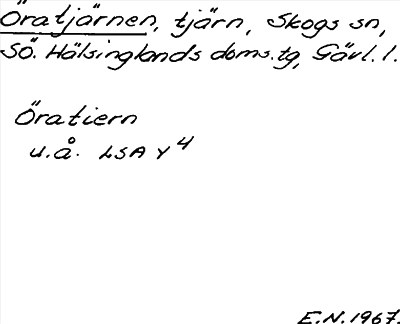 Öratjärnen, tjärn, Skogs sn,
Sö. Hälsinglands doms.tg, Gävl. l.
Öratiern
u.å. LSA Y 4
E.N. 1967.